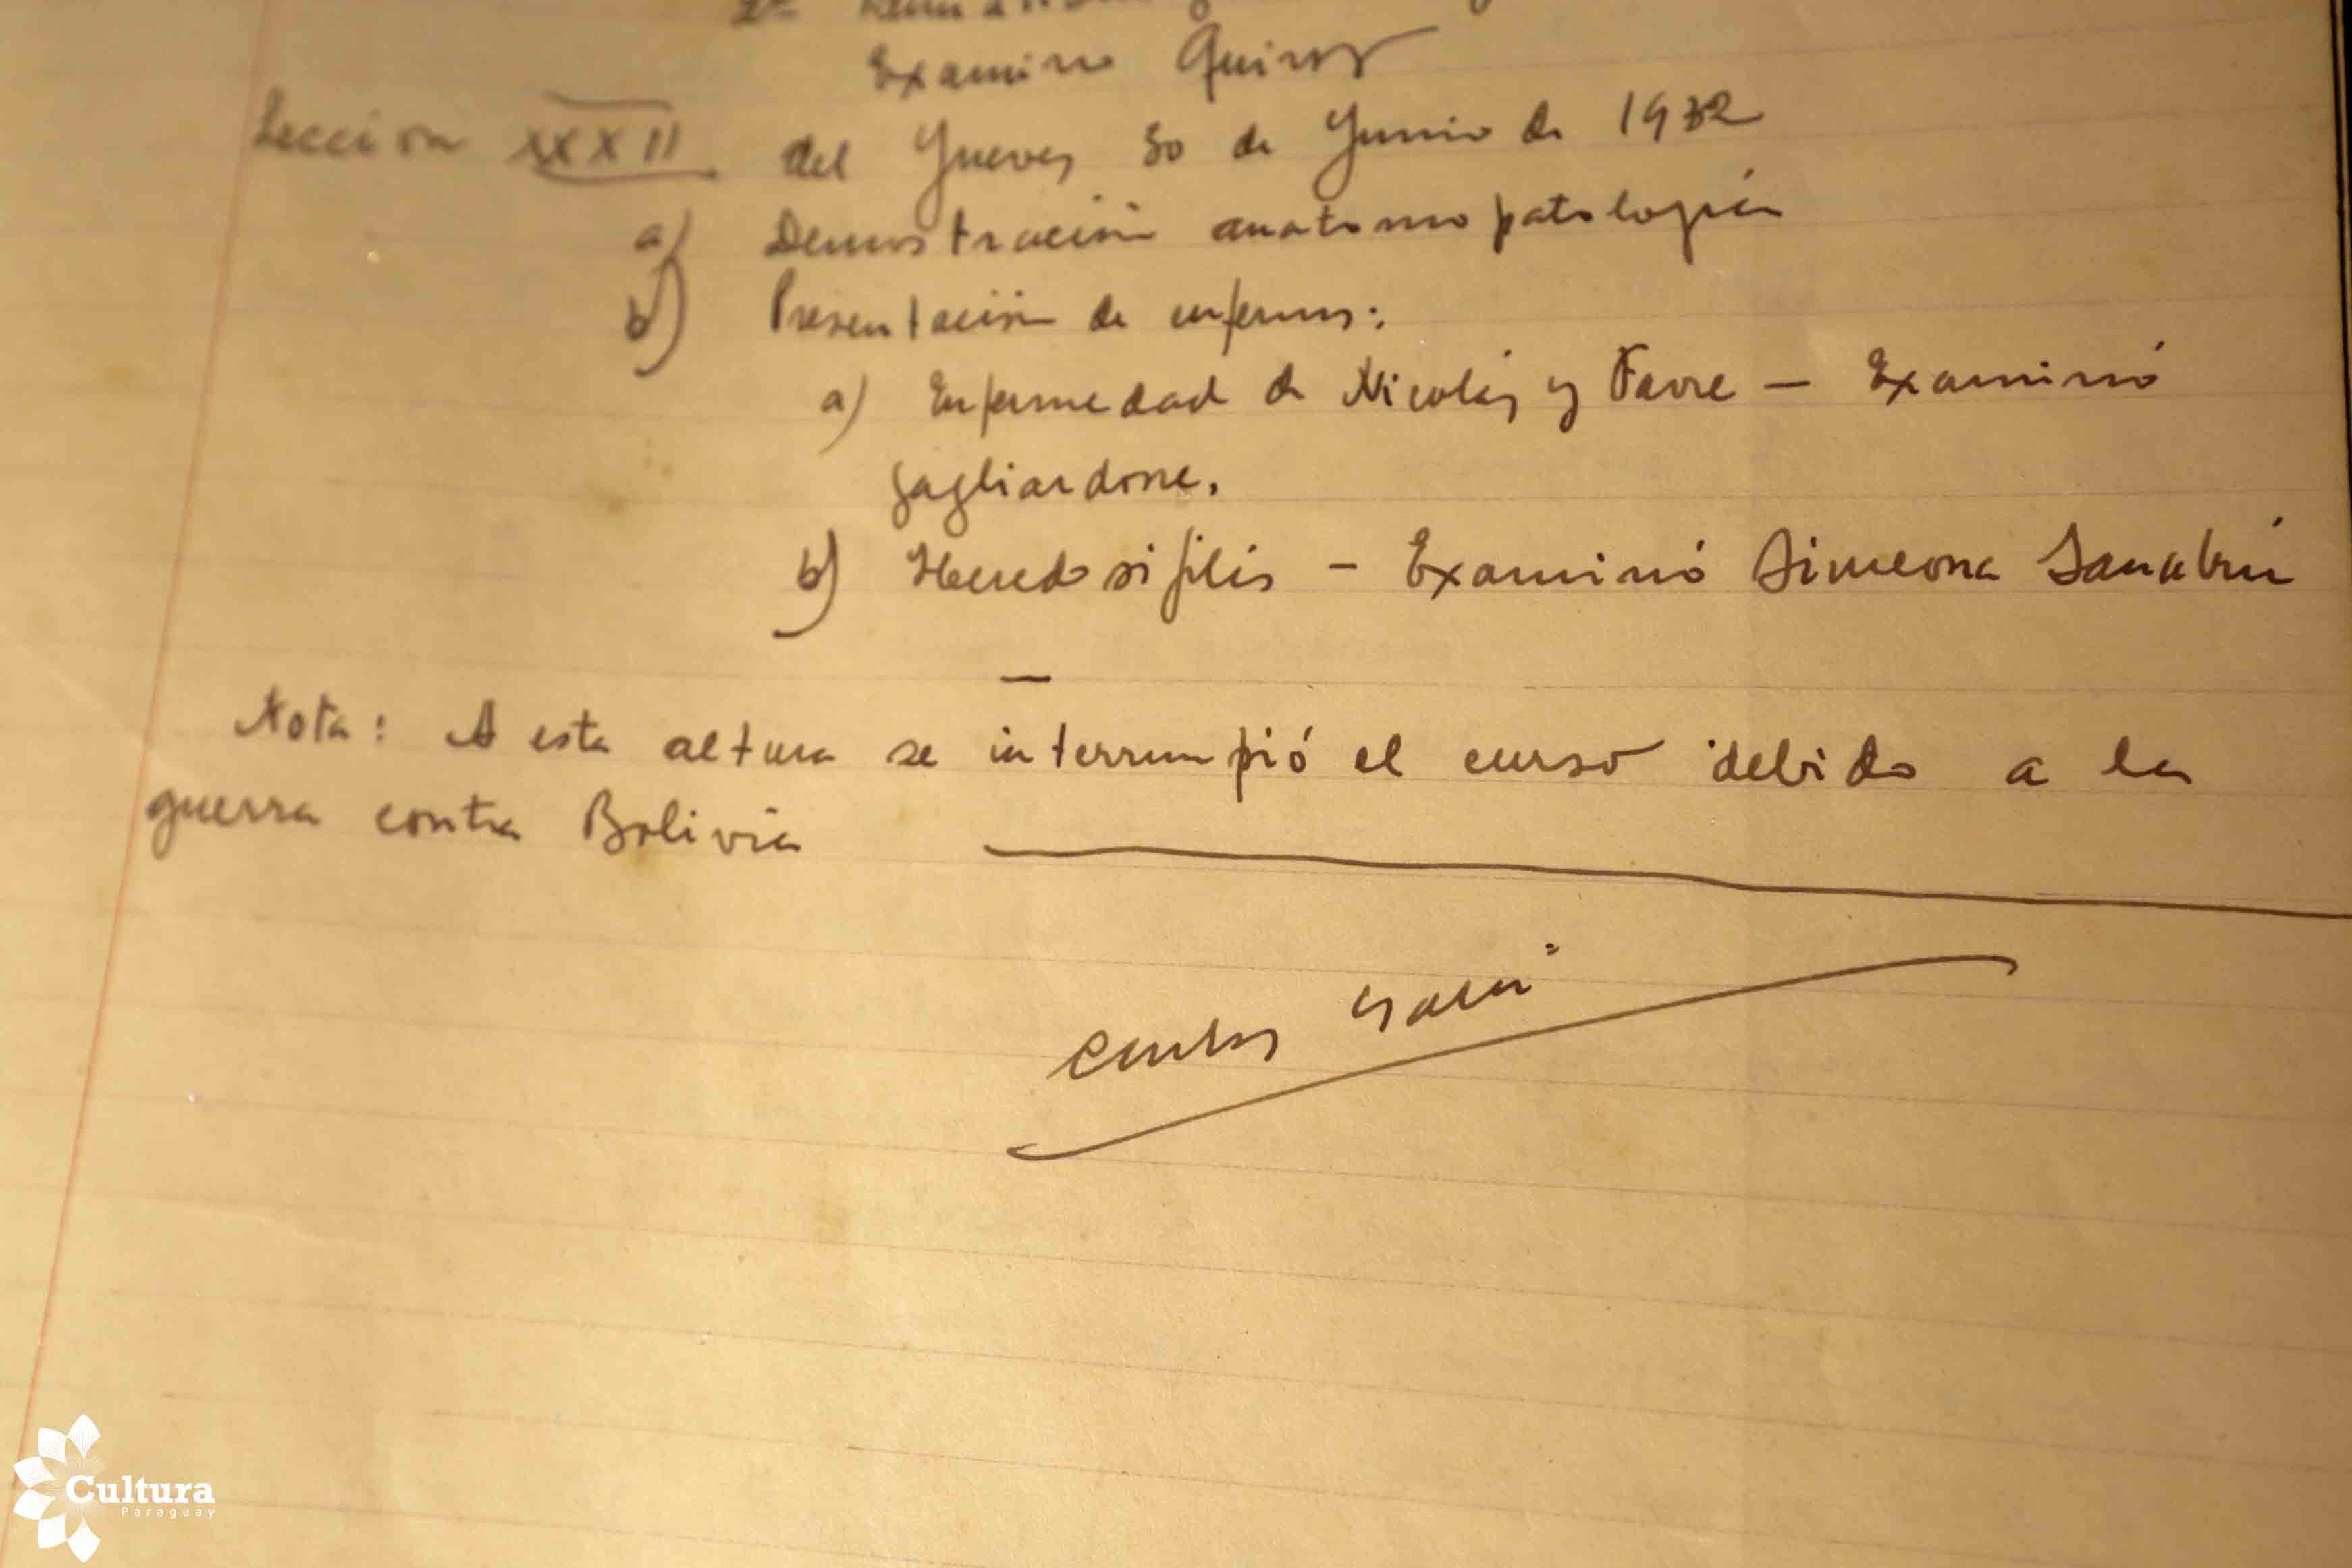 Examinó Quiroz
Leccion XXXII del Jueves 30 de Junio de 1932
a) Demostración anatomo patologica
b) Presentación de enfermos:
a) Enfermedad de Nicolás y Favre – Examinó
Gagliardone.
b) Heredo sifilis – Examinó Simeona Sanabria
Nota: A esta altura se interrumpió el curso debido a la
guerra contra Bolivia
Carlos
Cultura
Paraguay